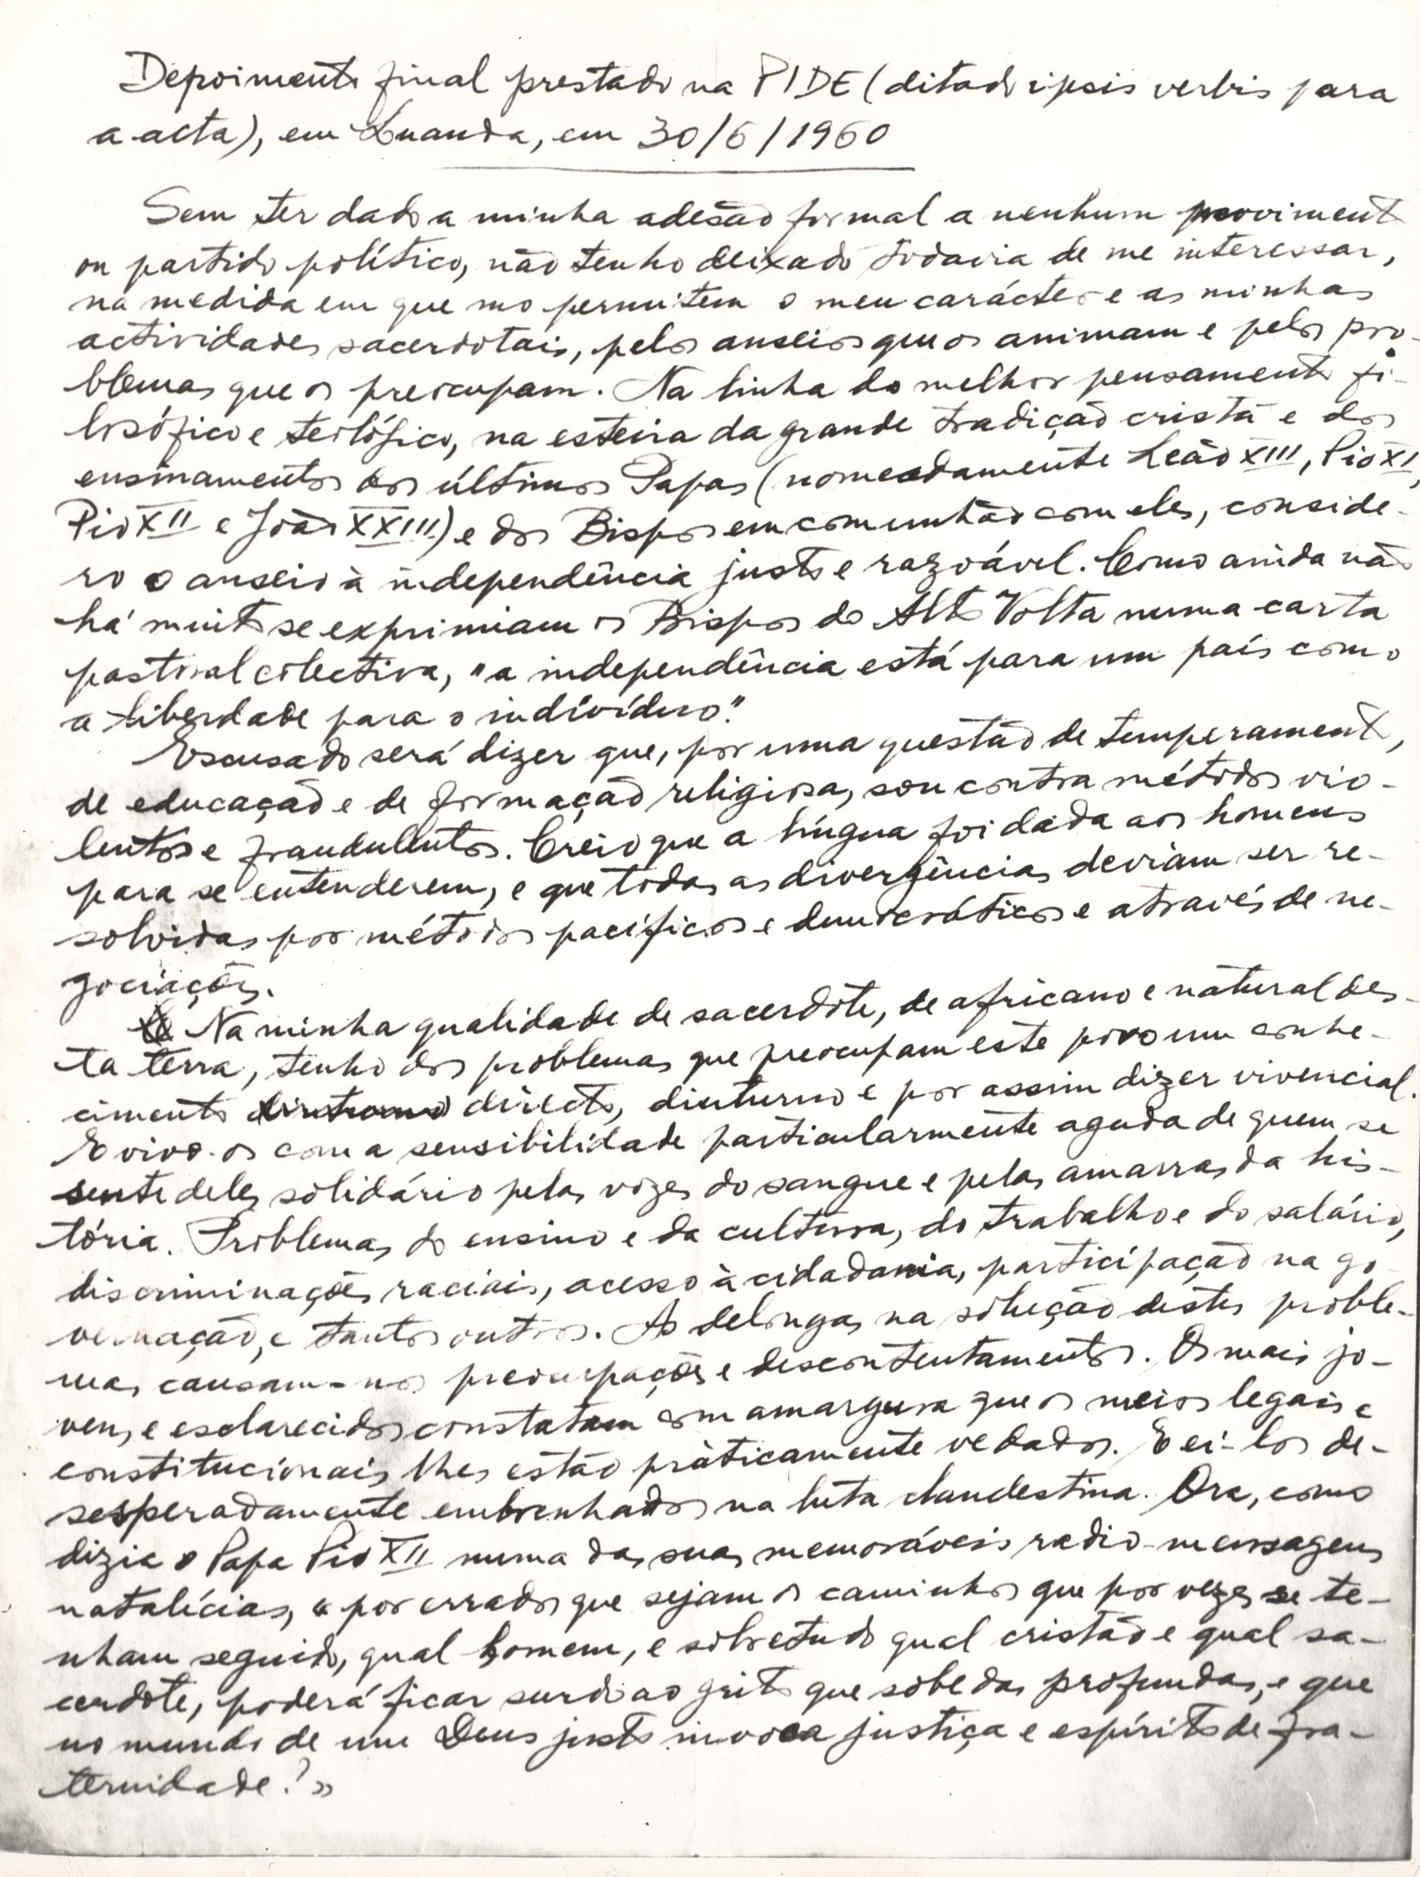 Depoimento final prestado na PIDE (ditado ipsis verbis para
a acta), em Luanda, em 30/6/1960
Sem ter dado a minha adesão formal a nenhum movimento
ou partido político, não tenho deixado todavia de me interessar,
na medida em que mo permitem o meu carácter e as minhas
actividades sacerdotais, pelos anseios que os animam e pelos pro-
blemas que os preocupam. Na linha do melhor pensamento fi-
losófico e teológico, na esteira da grande tradição cristã e dos
ensinamentos dos últimos Papas (nomeadamente Leão XIII, Pio XI,
Pio XII e João XXIII) e dos Bispos em comunhão com eles, conside-
ro o anseio à independência justo e razoável. Como ainda não
há muito se exprimiam os Bispos do Alto Volta numa carta
pastoral colectiva, "a independência está para um país como
a liberdade para o indivíduo".
Escusado será dizer que, por uma questão de temperamento,
de educação e de formação religiosa, sou contra métodos vio-
lentos e fraudulentos. Creio que a língua foi dada aos homens
para se entenderem, e que todas as divergências deviam ser re-
solvidas por métodos pacíficos e democráticos e através de ne-
gociações.
Na minha qualidade de sacerdote, de africano e natural des-
ta terra, tenho dos problemas que preocupam este povo um conhe-
cimento directo, diuturno e por assim dizer vivencial.
E vivo-os com a sensibilidade particularmente aguda de quem se
sente deles solidário pelas vozes do sangue e pelas amarras da his-
tória. Problemas do ensino e da cultura, do trabalho e do salário,
discriminações raciais, acesso à cidadania, participação na go-
vernação, e tantos outros. As delongas na solução destes proble-
mas causam-nos preocupações e descontentamentos. Os mais jo-
vens e esclarecidos constatam com amargura que os meios legais e
constitucionais lhes estão pràticamente vedados. E ei-los de-
sesperadamente embrenhados na luta clandestina. Ora, como
dizia o Papa Pio XII numa das suas memoráveis radio-mensagens
natalícias, « por errados que sejam os caminhos que por vezes se te-
nham seguido, qual homem, e sobretudo qual cristão e qual sa-
cerdote, poderá ficar surdo ao grito que sobe das profundas, e que
no mundo de um Deus justo invoca justiça e espírito de fra-
ternidade? »